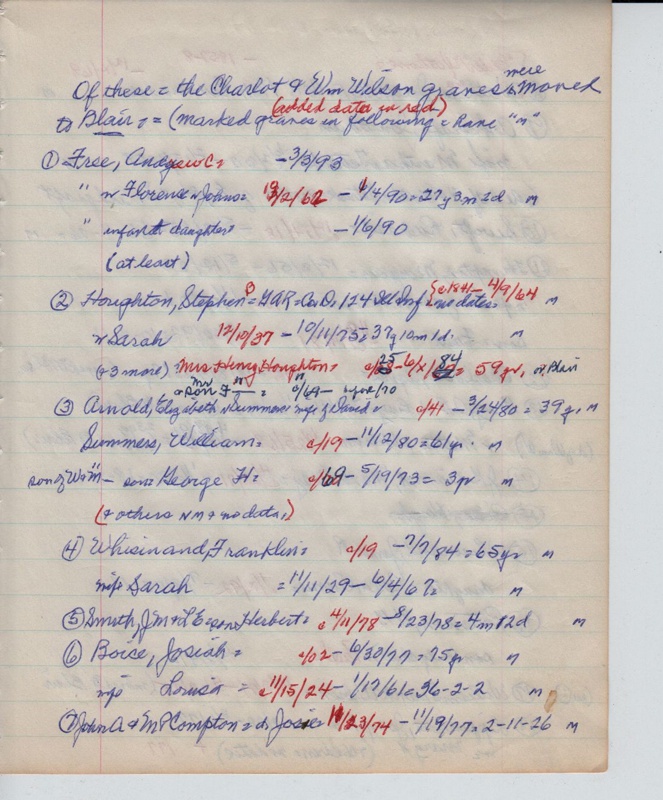 were
Of these = the Charlot & Wm Wilson graves moved
(added data in red)
to Blair = (marked graves in following = have "m"
① Free, Andrew C = - 3/3/93
" w Florence Johns = - 1/4/90 = 27y 3m 2d m
" infant daughter = - 1/6/90
(at least)
② Houghton, Stephen B = GAR = Co D, 124 Ill Inf no dates = c 1841 - 4/9/64 m
w Sarah 12/10/37 - 10/11/75 = 37y 10m 1d. m
(+ 3 more) = Mrs Henry Houghton = c/25 - 6/ /84 = 59 yr, or Blair
" son F " = c/69 - /70
③ Arnold, Elizabeth Summers = wife of David = c/41 - 3/24/80 = 39 yr, m
Summers, William = c/19 - 11/12/80 = 61 yr. m
son of W + M - son = George H = c/69 - 5/19/73 = 3 yr m
(+ others N M + no data,)
④ Whisinand, Franklin = c/19 - 7/7/84 = 65 yr m
wife Sarah = 11/11/29 - 6/4/67 = m
⑤ Smith, J M + L E = son Herbert = c 4/11/78 - 8/23/78 = 4m 12d m
⑥ Boice, Josiah = c/02 - 6/30/77 = 75 yr m
wife Louisa = c 11/15/24 - 1/17/61 = 36-2-2 m
⑦ John A & M P Compton = d, Josie 11/23/74 - 11/19/77 = 2-11-26 m